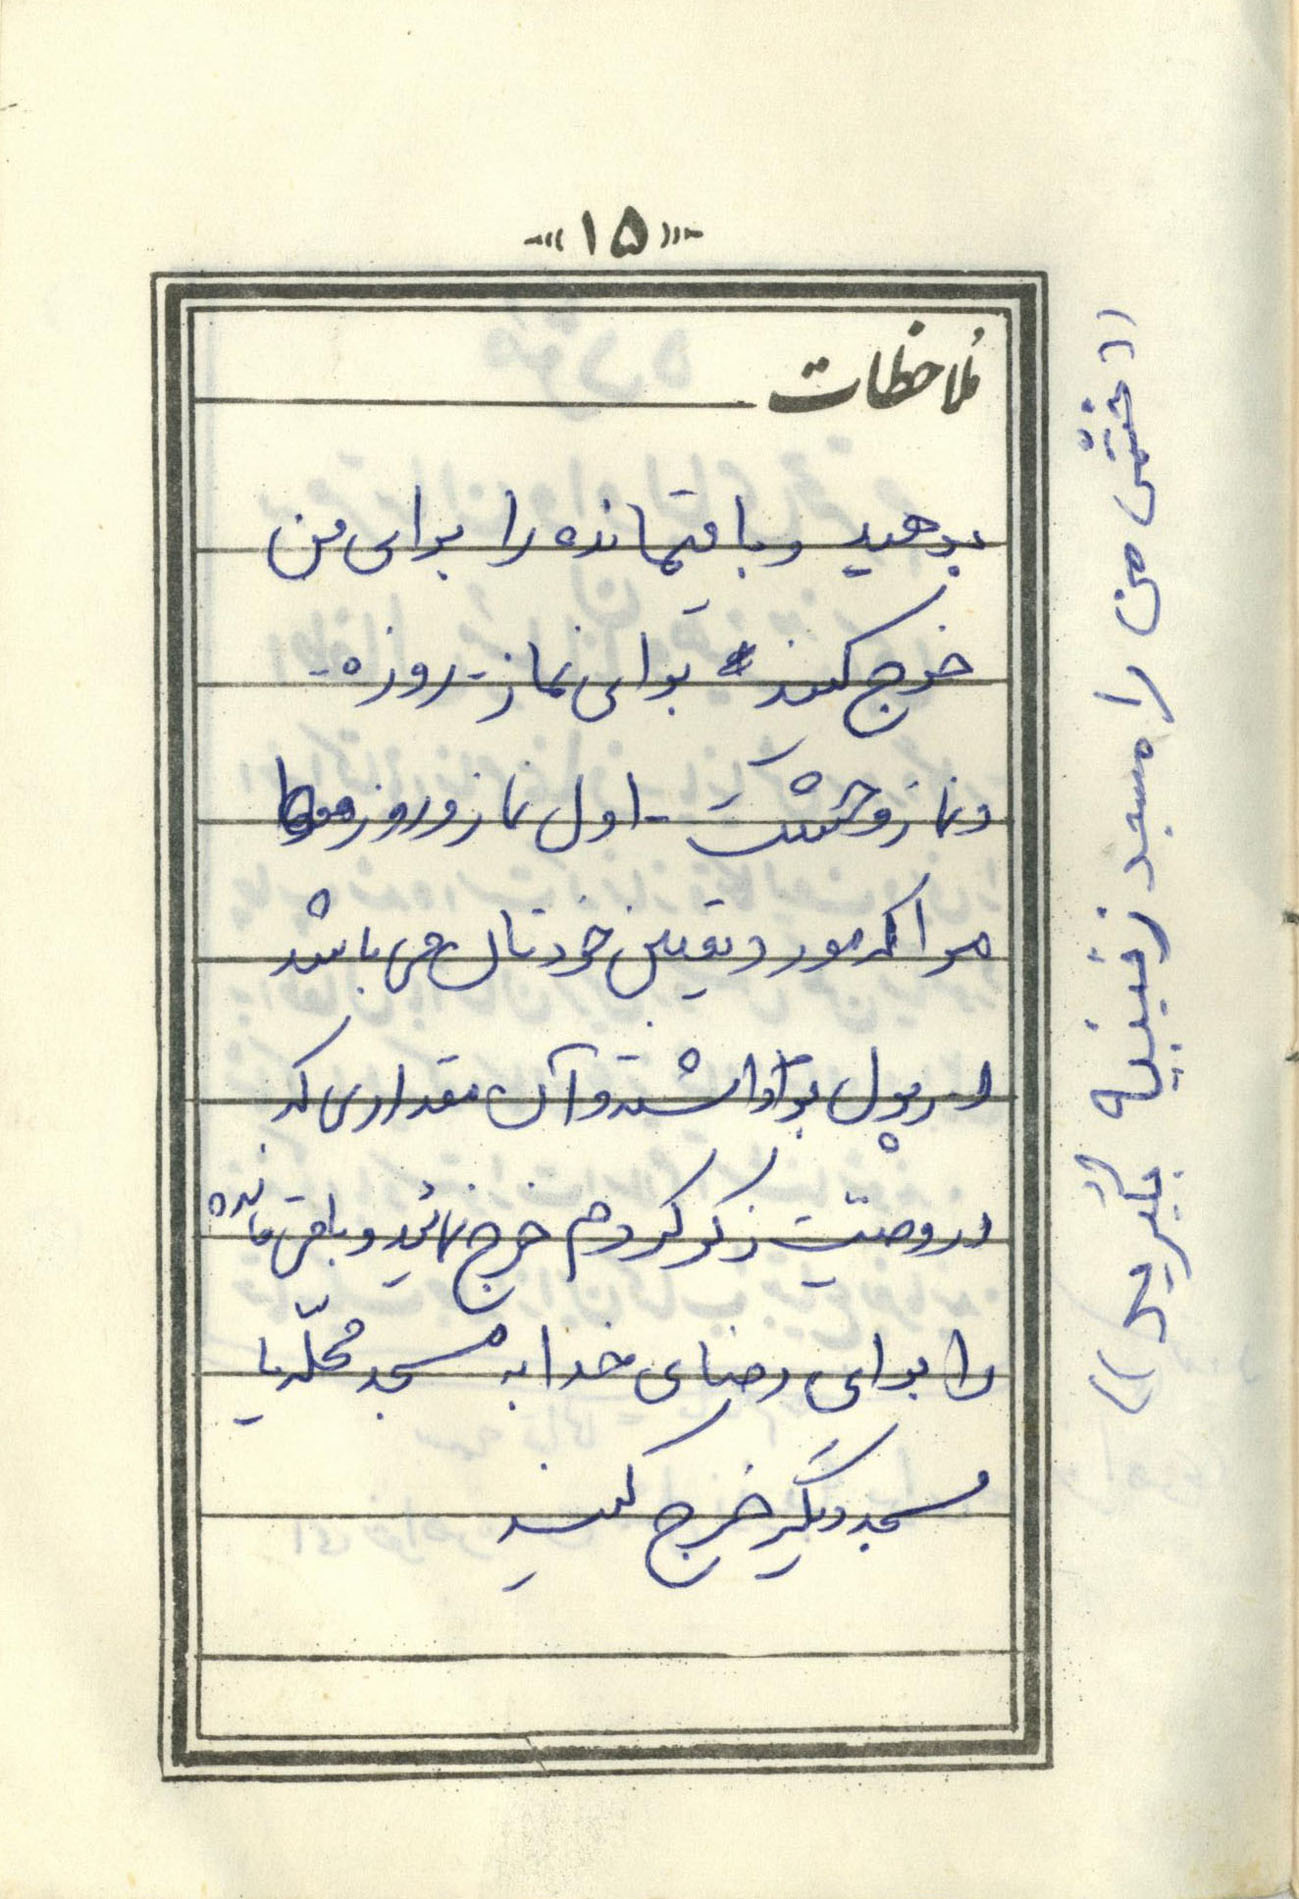 «۱۵»
ملاحظات
بدهید و باقیمانده را برای من
خرج کنید برای نماز - روزه -
و نماز وحشت - اول نماز و روز
مرا که مورد یقین خودتان می باشد
از پول برداشته و آن مقداری که
در وصیّت ذکر کردم خرج نمائید و باقی مانده
را برای رضای خدا به مسجد محلّه یا
مسجد دیگر خرج کنید
((ختم من را مسجد زینبیه بگیرید))